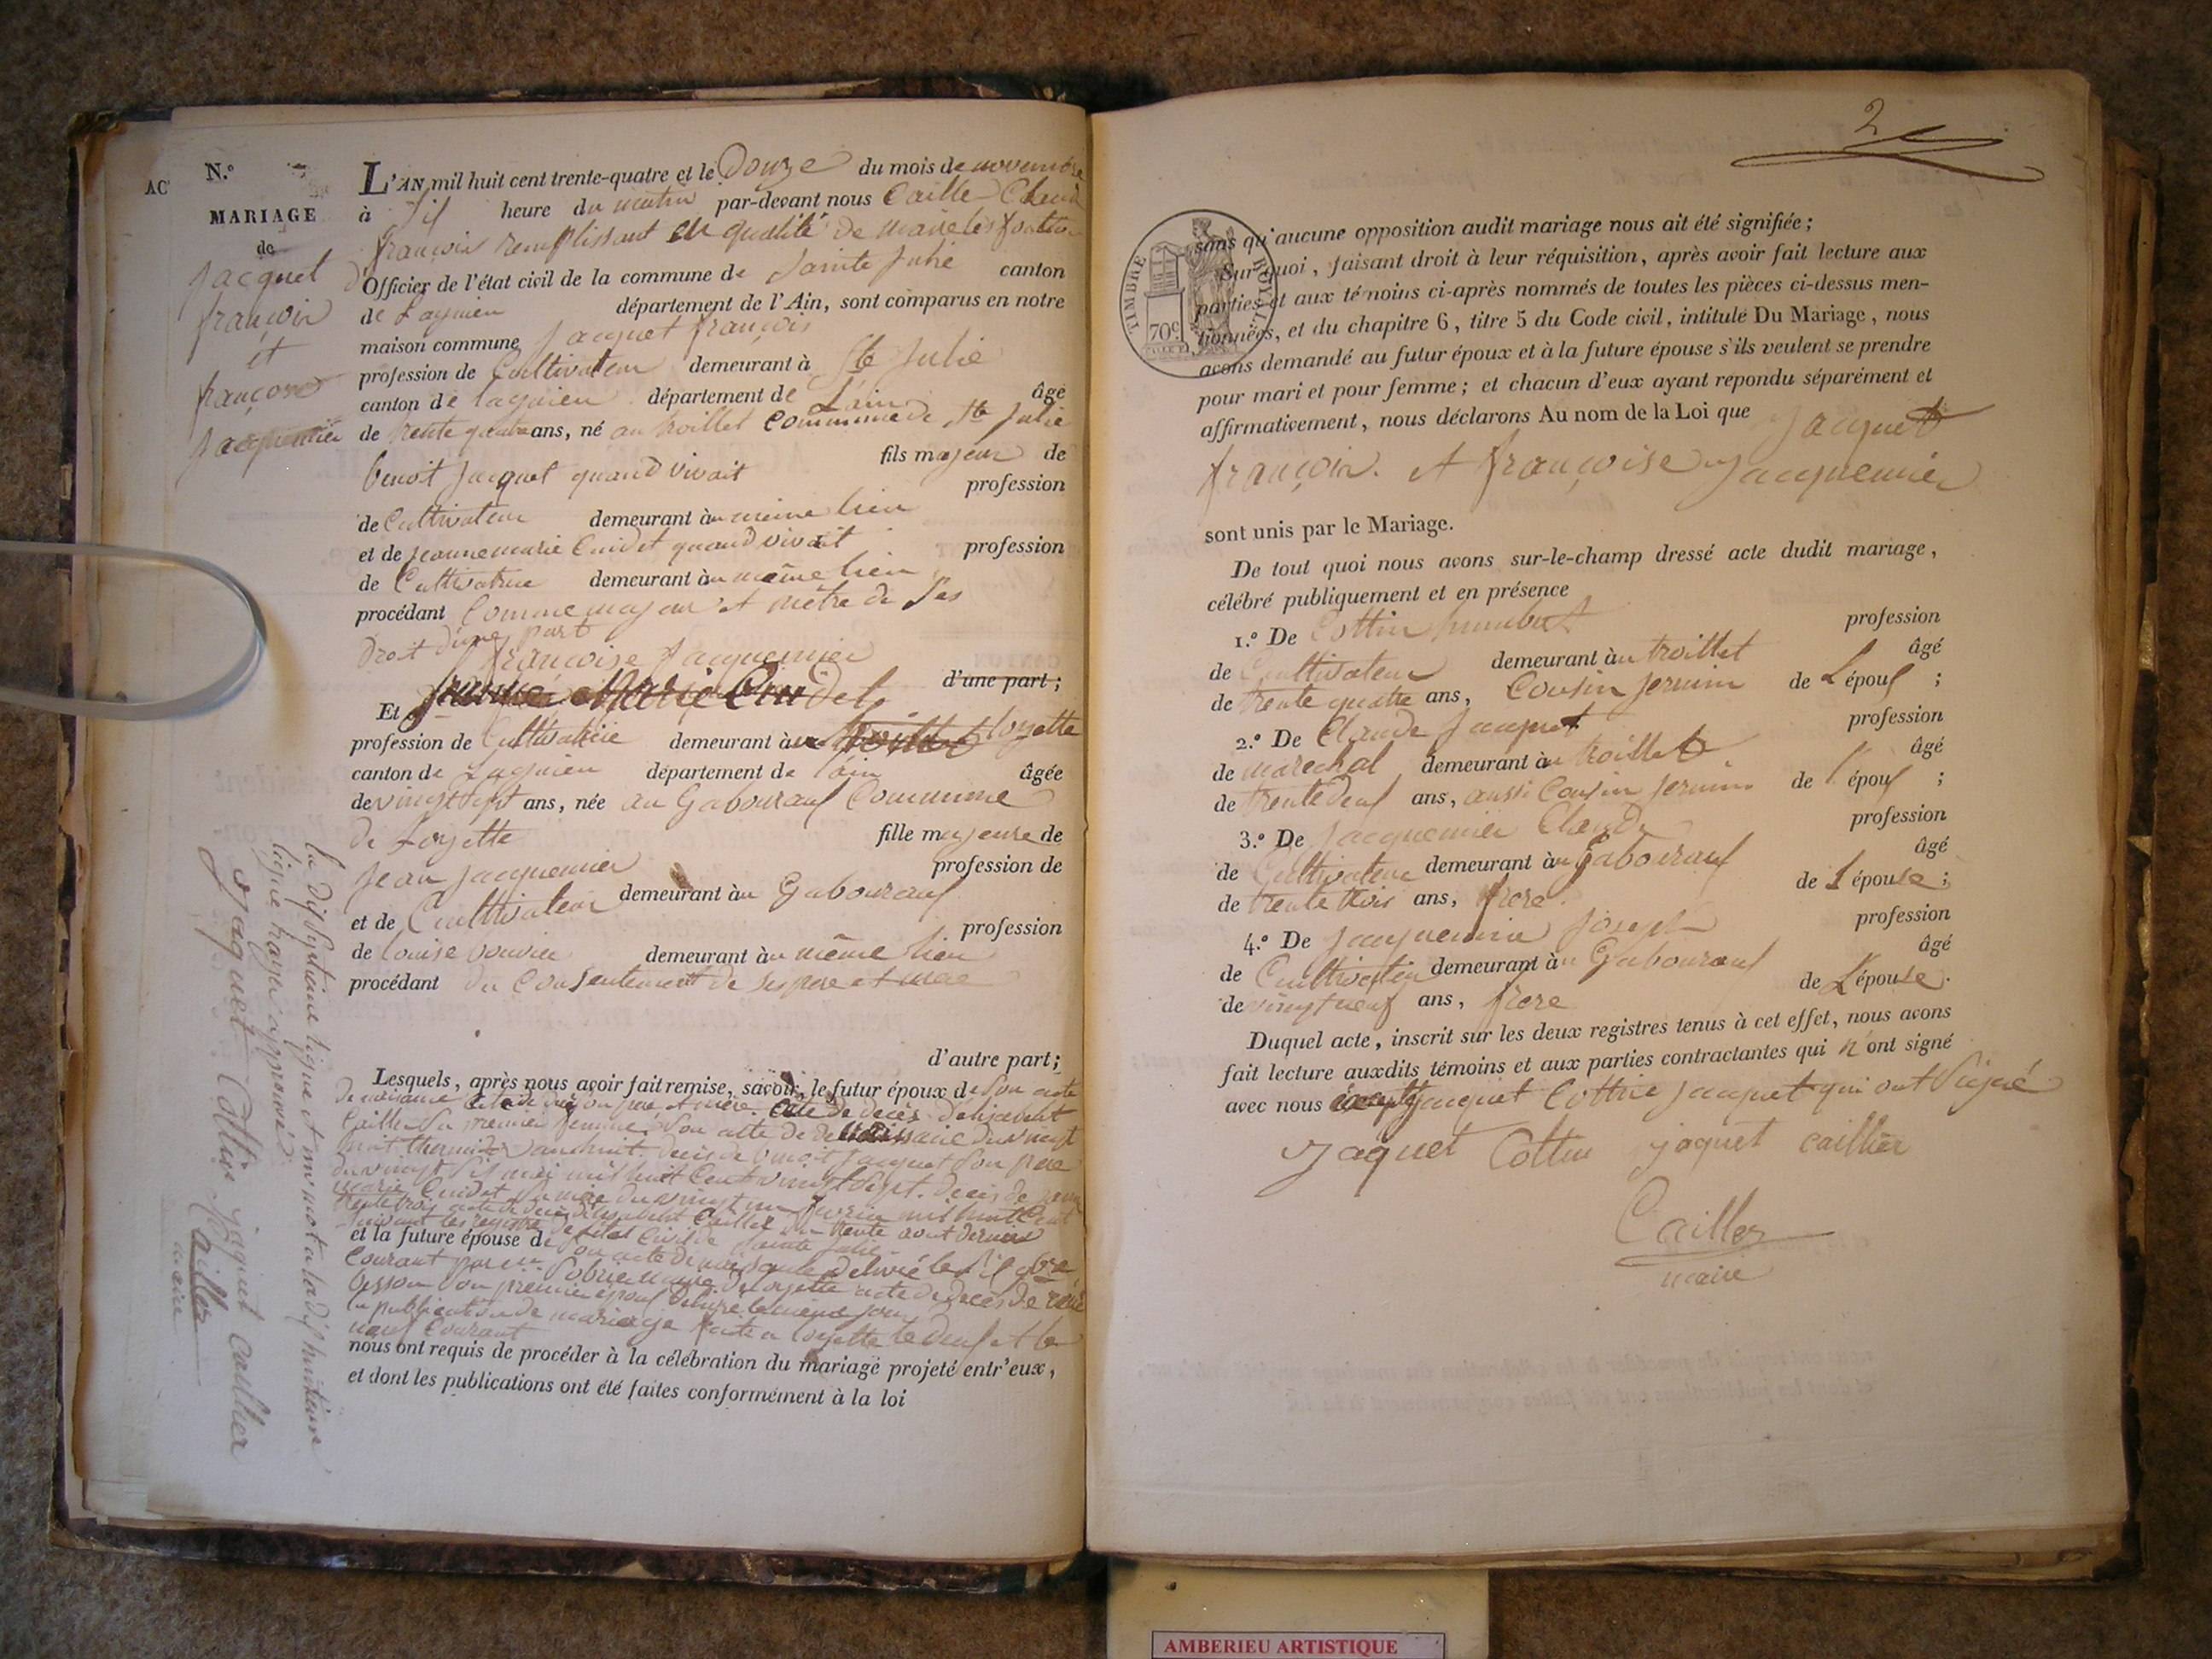 AC
N.°
MARIAGE
de
Jacquet
françois
et
françoise
jacquemier
L'AN mil huit cent trente-quatre et le Douze du mois de novembre
à Six heure du matin par-devant nous Caille Claude
françois remplissant en qualité de maire les fonction
d'Officier de l'état civil de la commune de Sainte Julie canton
de Lagnieu département de l'Ain, sont comparus en notre
maison commune Jacquet françois
profession de Cultivateur demeurant à Ste Julie
canton de lagnieu département de L'ain âgé
de trente quatre ans, né au troillet Commune de Ste Julie
fils majeur de
benoit Jacquet quand vivait profession
de Cultivateur demeurant àu meme lieu
et de jeannemarie Cuidet quand vivait profession
de Cultivatrice demeurant àu même lieu
procédant Comme majeur et mètre de Ses
droit d'une part
françoise Jacquemier
d'une part ;
Et jeanne Marie Cuidet
profession de Cultivatrice demeurant à troillet loyette
canton de Lagnieu département de l'ain âgée
de vingt sept ans, née au Gabouraux Commune
de Loyette fille majeure de
Jean Jacquemier profession de
et de Cultivateur demeurant àu Gabouraux
profession
de louise bouvier demeurant àu même lieu
procédant du Consentement de ses pere et mere
d'autre part;
Lesquels, après nous avoir fait remise, savoir, le futur époux de Son acte
de naissance acte de decès de son père et mère. acte de decès delisabeth
Caillier Sa premier femme. Son acte de de naissance du vingt
huit thermidor an huit. decis de benoit Jacquet Son père
du vingt six mai mil huit Cent vingt Sept. decis de jeanne
marie Cuidet Sa mere du vingt un fevrier mil huit Cent
trente trois acte de decis delisabeth Caillier du trente aout dernier
suivant les registre de l'état Civil de Sainte Julie
et la future épouse de Son acte de naissance delivré le Six 9bre
Courant par mr Sobrie maire de loyette acte de decès de rené
besson Son premier époux delivré le même jour
la publication de mariage faite a loyette le deux et le
neuf Courant
nous ont requis de procéder à la célébration du mariage projeté entr'eux,
et dont les publications ont été faites conformément à la loi
la dix Septième ligne et un mot a la dix huitième
ligne rayer approuvé
Jaquet Cottin jaquet caillier
Caillez
maire
2
TIMBRE ROYAL
70c
sans qu'aucune opposition audit mariage nous ait été signifiée ;
Sur quoi, faisant droit à leur réquisition, après avoir fait lecture aux
parties et aux témoins ci-après nommés de toutes les pièces ci-dessus men-
tionnées, et du chapitre 6, titre 5 du Code civil, intitulé Du Mariage, nous
avons demandé au futur époux et à la future épouse s'ils veulent se prendre
pour mari et pour femme ; et chacun d'eux ayant répondu séparément et
affirmativement, nous déclarons Au nom de la Loi que Jacquet
françois. et françoise Jacquemier
sont unis par le Mariage.
De tout quoi nous avons sur-le-champ dressé acte dudit mariage,
célébré publiquement et en présence
1.° De Cottin humbert profession
de Cultivateur demeurant àu troillet âgé
de trente quatre ans, Cousin jermin de L'époux ;
2.° De Claude Jacquet profession
de marechal demeurant àu troillet âgé
de trente deux ans, aussi Cousin jermin de l'époux ;
3.° De Jacquemier Claude profession
de Cultivateur demeurant àu Gabouraux âgé
de trente trois ans, frere de L'épouse ;
4.° De Jacquemier Joseph profession
de Cultivateur demeurant àu Gabouraux âgé
de vingt neuf ans, frere de L'épouse.
Duquel acte, inscrit sur les deux registres tenus à cet effet, nous avons
fait lecture auxdits témoins et aux parties contractantes qui n'ont signé
avec nous excepté Jacquet Cottin Jacquet qui ont Signé
Jaquet Cottin jaquet caillier
Caillez
maire
AMBERIEU ARTISTIQUE